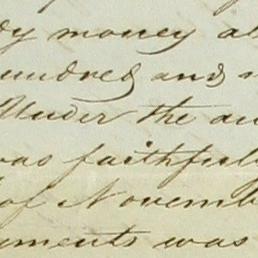 dy money al
undred and n
Under the au
was faithfully
of November
uments was